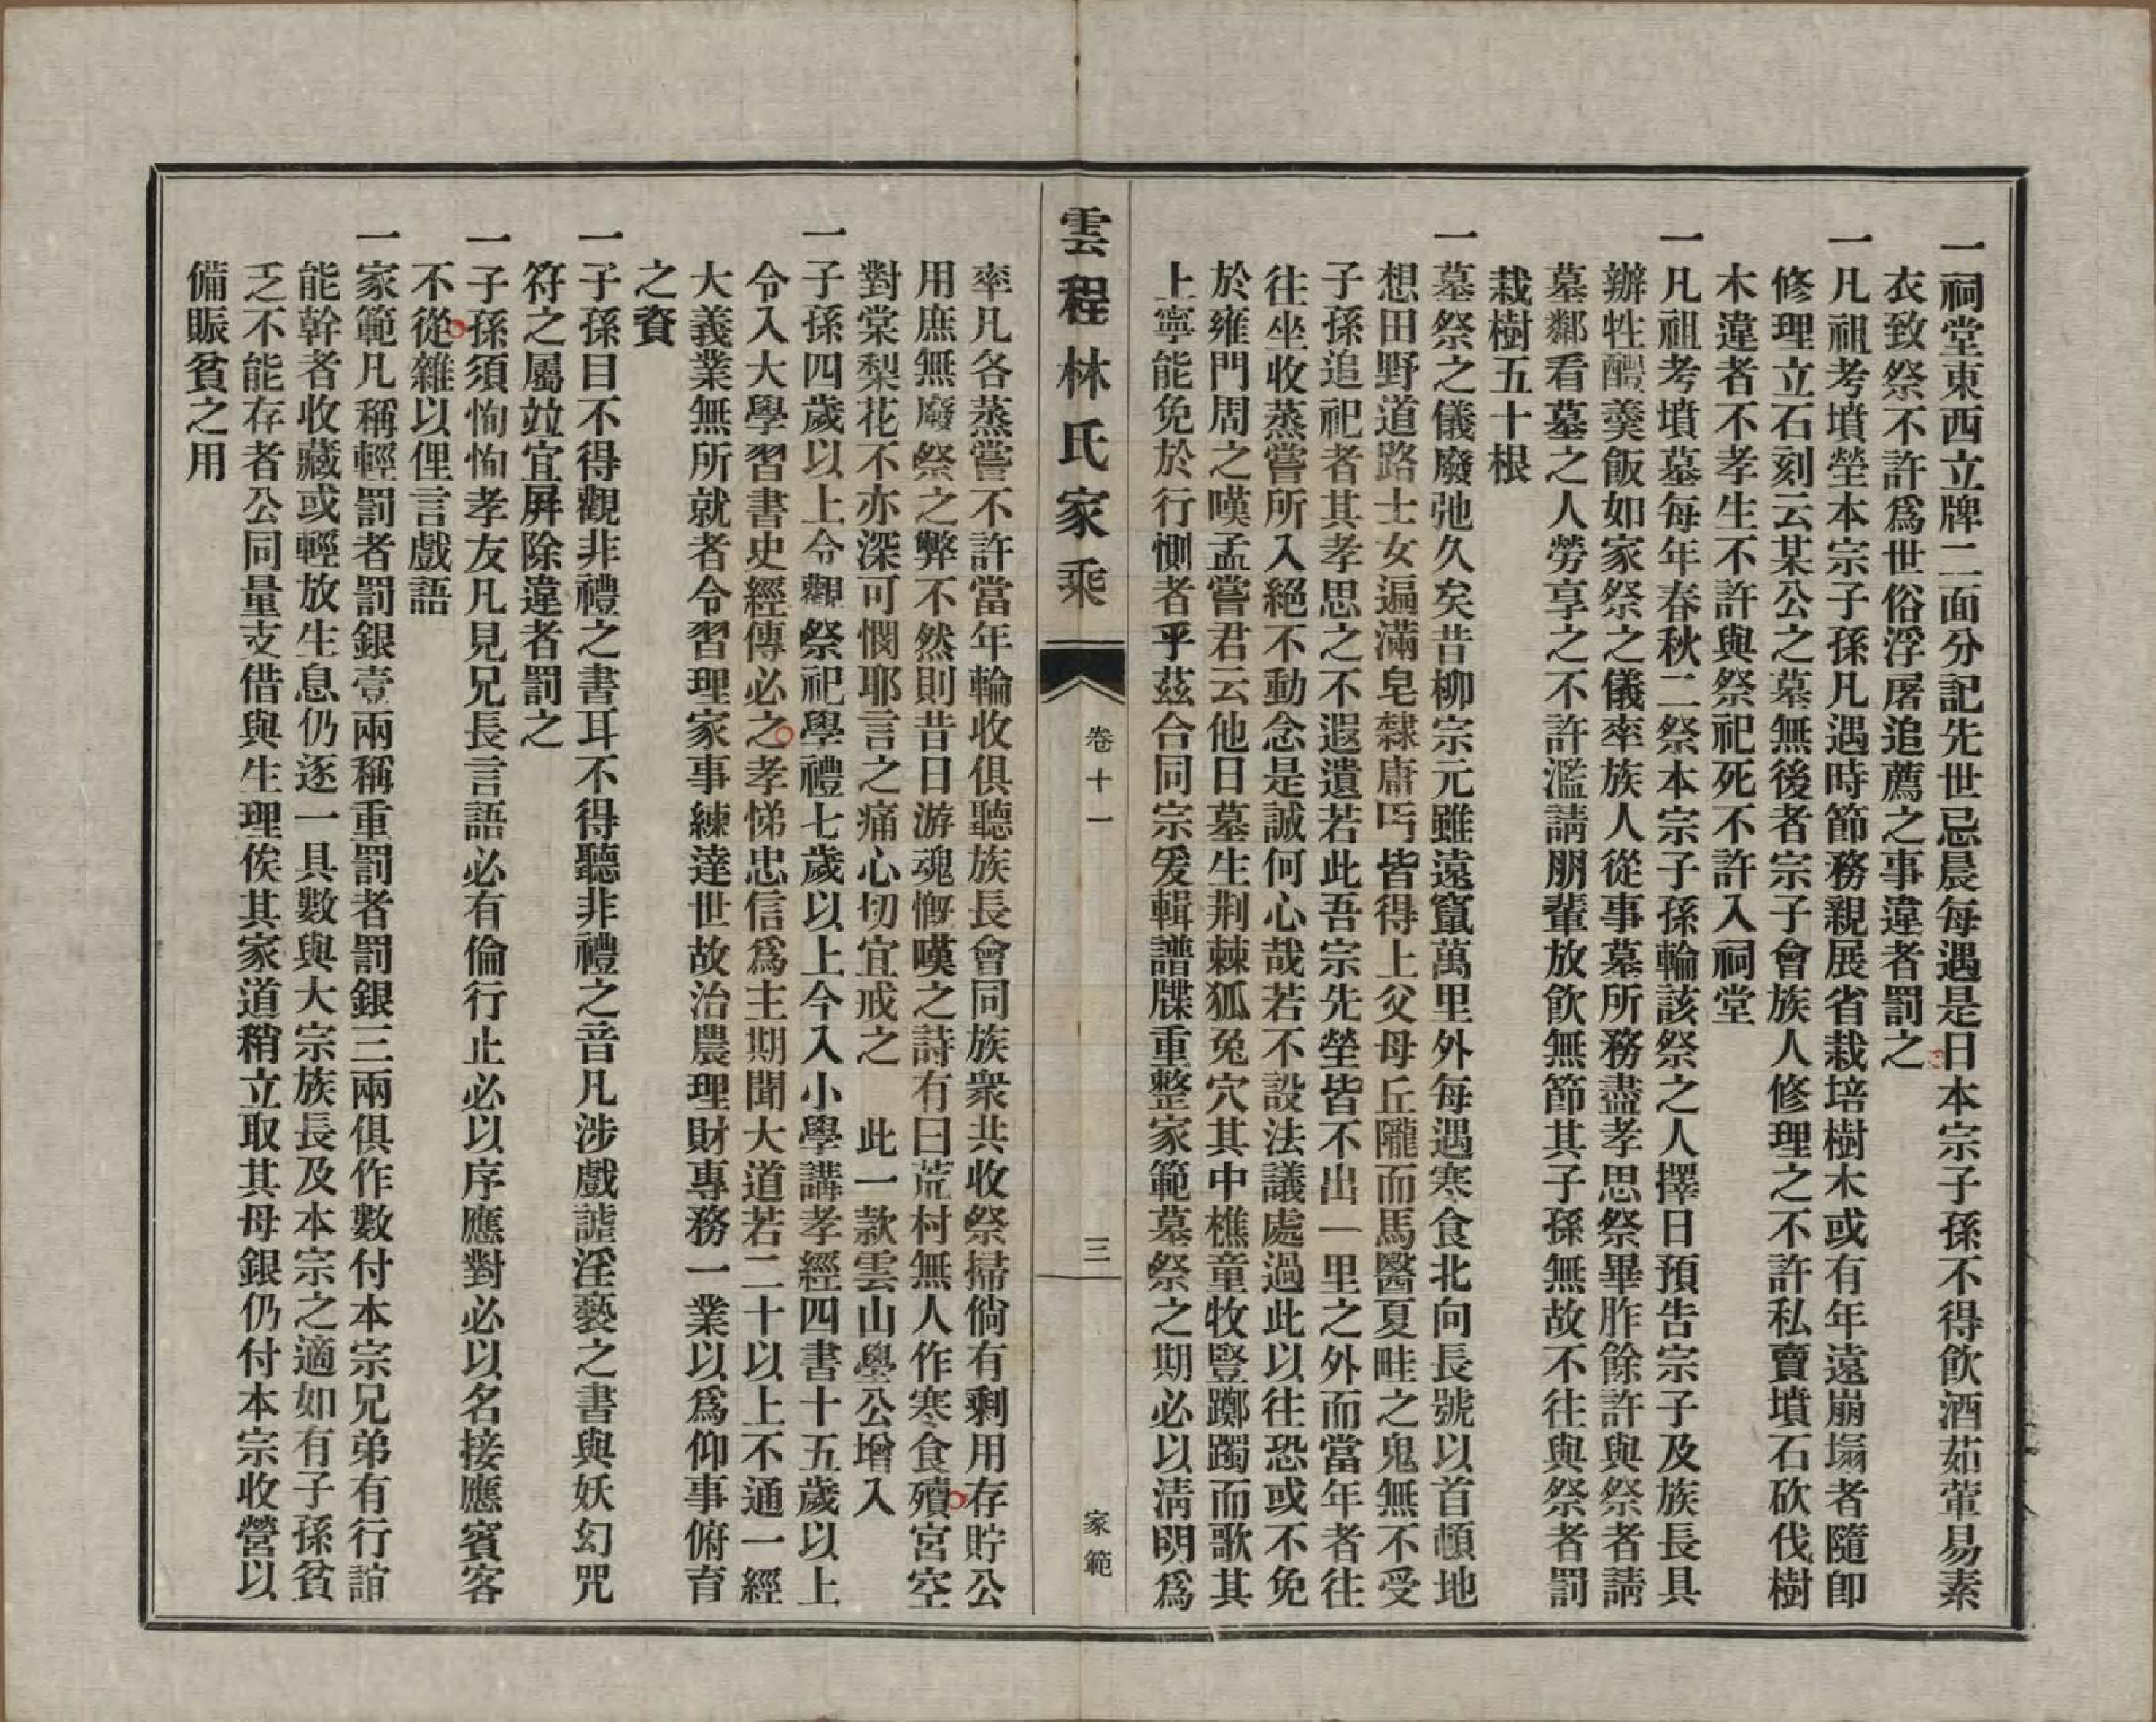 一祠堂東西立牌二面分記先世忌晨每遇是日本宗子孫不得飮酒茹葷易素
衣致祭不許爲世俗浮屠追薦之事違者罰之
一凡祖考墳塋本宗子孫凡遇時節務親展省栽培樹木或有年遠崩塌者隨卽
修理立石刻云某公之墓無後者宗子會族人修理之不許私賣墳石砍伐樹
木違者不孝生不許與祭祀死不許入祠堂
一凡祖考墳墓每年春秋二祭本宗子孫輪該祭之人擇日預吿宗子及族長具
辦牲醴羮飯如家祭之儀率族人從事墓所務盡孝思祭畢胙餘許與祭者請
墓鄰看墓之人勞享之不許濫請朋輩放飮無節其子孫無故不往與祭者罰
栽樹五十根
一墓祭之儀廢弛久矣昔柳宗元雖遠竄萬里外每遇寒食北向長號以首頓地
想田野道路士女遍滿皂隸庸丐皆得上父母丘隴而馬醫夏畦之鬼無不受
子孫追祀者其孝思之不遐遺若此吾宗先塋皆不出一里之外而當年者往
往坐收蒸嘗所入絕不動念是誠何心哉若不設法議處過此以往恐或不免
於雍門周之嘆孟嘗君云他日墓生荆棘狐兔穴其中樵童牧豎躑躅而歌其
上寧能免於行惻者乎茲合同宗爰輯譜牒重整家範墓祭之期必以淸明爲
雲程林氏家乘
卷十一
三
家範
率凡各蒸嘗不許當年輪收俱聽族長會同族衆共收祭掃倘有剩用存貯公
用庶無廢祭之弊不然則昔日游魂慨嘆之詩有曰荒村無人作寒食殯宮空
對棠梨花不亦深可憫耶言之痛心切宜戒之　此一款雲山學公增入
一子孫四歲以上令觀祭祀學禮七歲以上令入小學講孝經四書十五歲以上
令入大學習書史經傳必之孝悌忠信爲主期聞大道若二十以上不通一經
大義業無所就者令習理家事練達世故治農理財專務一業以爲仰事俯育
之資
一子孫目不得觀非禮之書耳不得聽非禮之音凡涉戲謔淫褻之書與妖幻咒
符之屬竝宜屛除違者罰之
一子孫須恂恂孝友凡見兄長言語必有倫行止必以序應對必以名接應賓客
不從雜以俚言戲語
一家範凡稱輕罰者罰銀壹兩稱重罰者罰銀三兩俱作數付本宗兄弟有行誼
能幹者收藏或輕放生息仍逐一具數與大宗族長及本宗之適如有子孫貧
乏不能存者公同量支借與生理俟其家道稍立取其母銀仍付本宗收營以
備賑貧之用